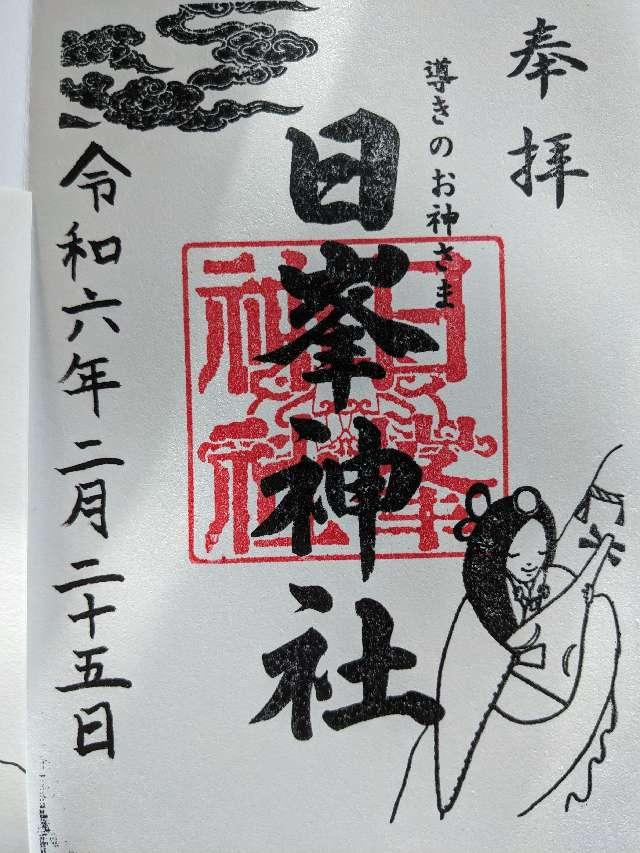 奉拝
導きのお神さま
日峯神社
日峯神社
令和六年二月二十五日